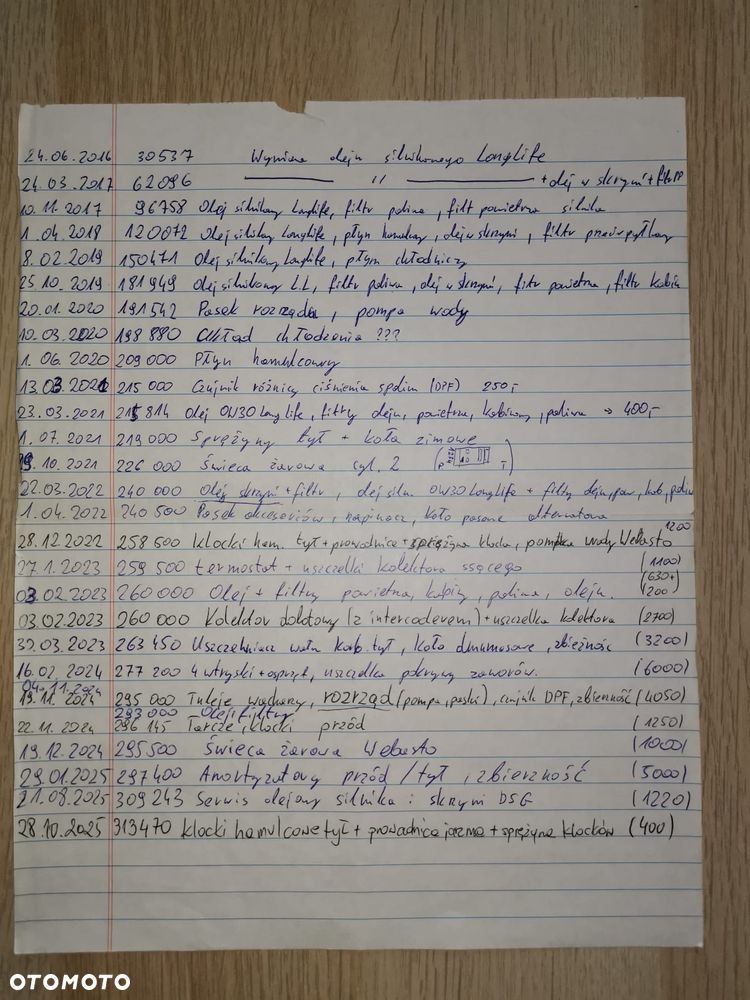 24.06.2016 30537 Wymiana oleju silnikowego Longlife
24.03.2017 62096 —— 11 —— + olej w skrzyni + filtr PP
10.11.2017 96758 Olej silnikowy Longlife, filtr paliwa, filt powietrza silnika
1.04.2018 120072 Olej silnikowy Longlife, płyn hamulcowy, olej w skrzyni, filtr przeciwpyłkowy
8.02.2019 150471 Olej silnikowy Longlife, płyn chłodniczy
25.10.2019 181949 olej silnikowy LL, filtr paliwa, olej w skrzyni, filtr powietrza, filtr kabin
20.01.2020 191542 Pasek rozrządu, pompa wody
10.03.2020 198880 Układ chłodzenia ???
1.06.2020 209000 Płyn hamulcowy
13.03.2021 215000 Czujnik różnicy ciśnienia spalin (DPF) 250,-
23.03.2021 215814 olej 0W30 Longlife, filtry oleju, powietrza, kabinowy, paliwa → 400,-
1.07.2021 219000 Sprężyny tył + koła zimowe
19.10.2021 226000 Świeca żarowa cyl. 2 (P T)
22.03.2022 240000 Olej skrzyni + filtr, olej siln. 0W30 Longlife + filtry oleju, pow, kab, paliw
1.04.2022 240500 Pasek akcesoriów, napinacz, koło pasowe alternatora
28.12.2022 258500 klocki ham. tył + prowadnice + sprężyna klocka, pompka wody Webasto 1200
27.1.2023 259500 termostat + uszczelki kolektora ssącego (1100)
03.02.2023 260000 Olej + filtry powietrza, kabiny, paliwa, oleju. (630+200)
03.02.2023 260000 Kolektor dolotowy (z intercoolerem) + uszczelka kolektora (2700)
30.03.2023 263450 Uszczelniacz wału korb. tył, koło dwumasowe, zbieżność (3200)
16.02.2024 277200 4 wtryski + osprzęt, uszczelka pokrywy zaworów. (6000)
19.11.2024 295000 Tuleje wahaczy, rozrząd (pompa, paski), czujnik DPF, zbieżność (4050)
04.11.2024 293000 Olej i filtry
22.11.2024 296145 Tarcze, klocki przód (1250)
19.12.2024 295500 Świeca żarowa Webasto (1000)
29.01.2025 297400 Amortyzatory przód / tył, zbierzność (5000)
21.08.2025 309243 Serwis olejowy silnika i skrzyni DSG (1220)
28.10.2025 313470 klocki hamulcowe tył + prowadnica jarzma + sprężyna klocków (400)
OTOMOTO